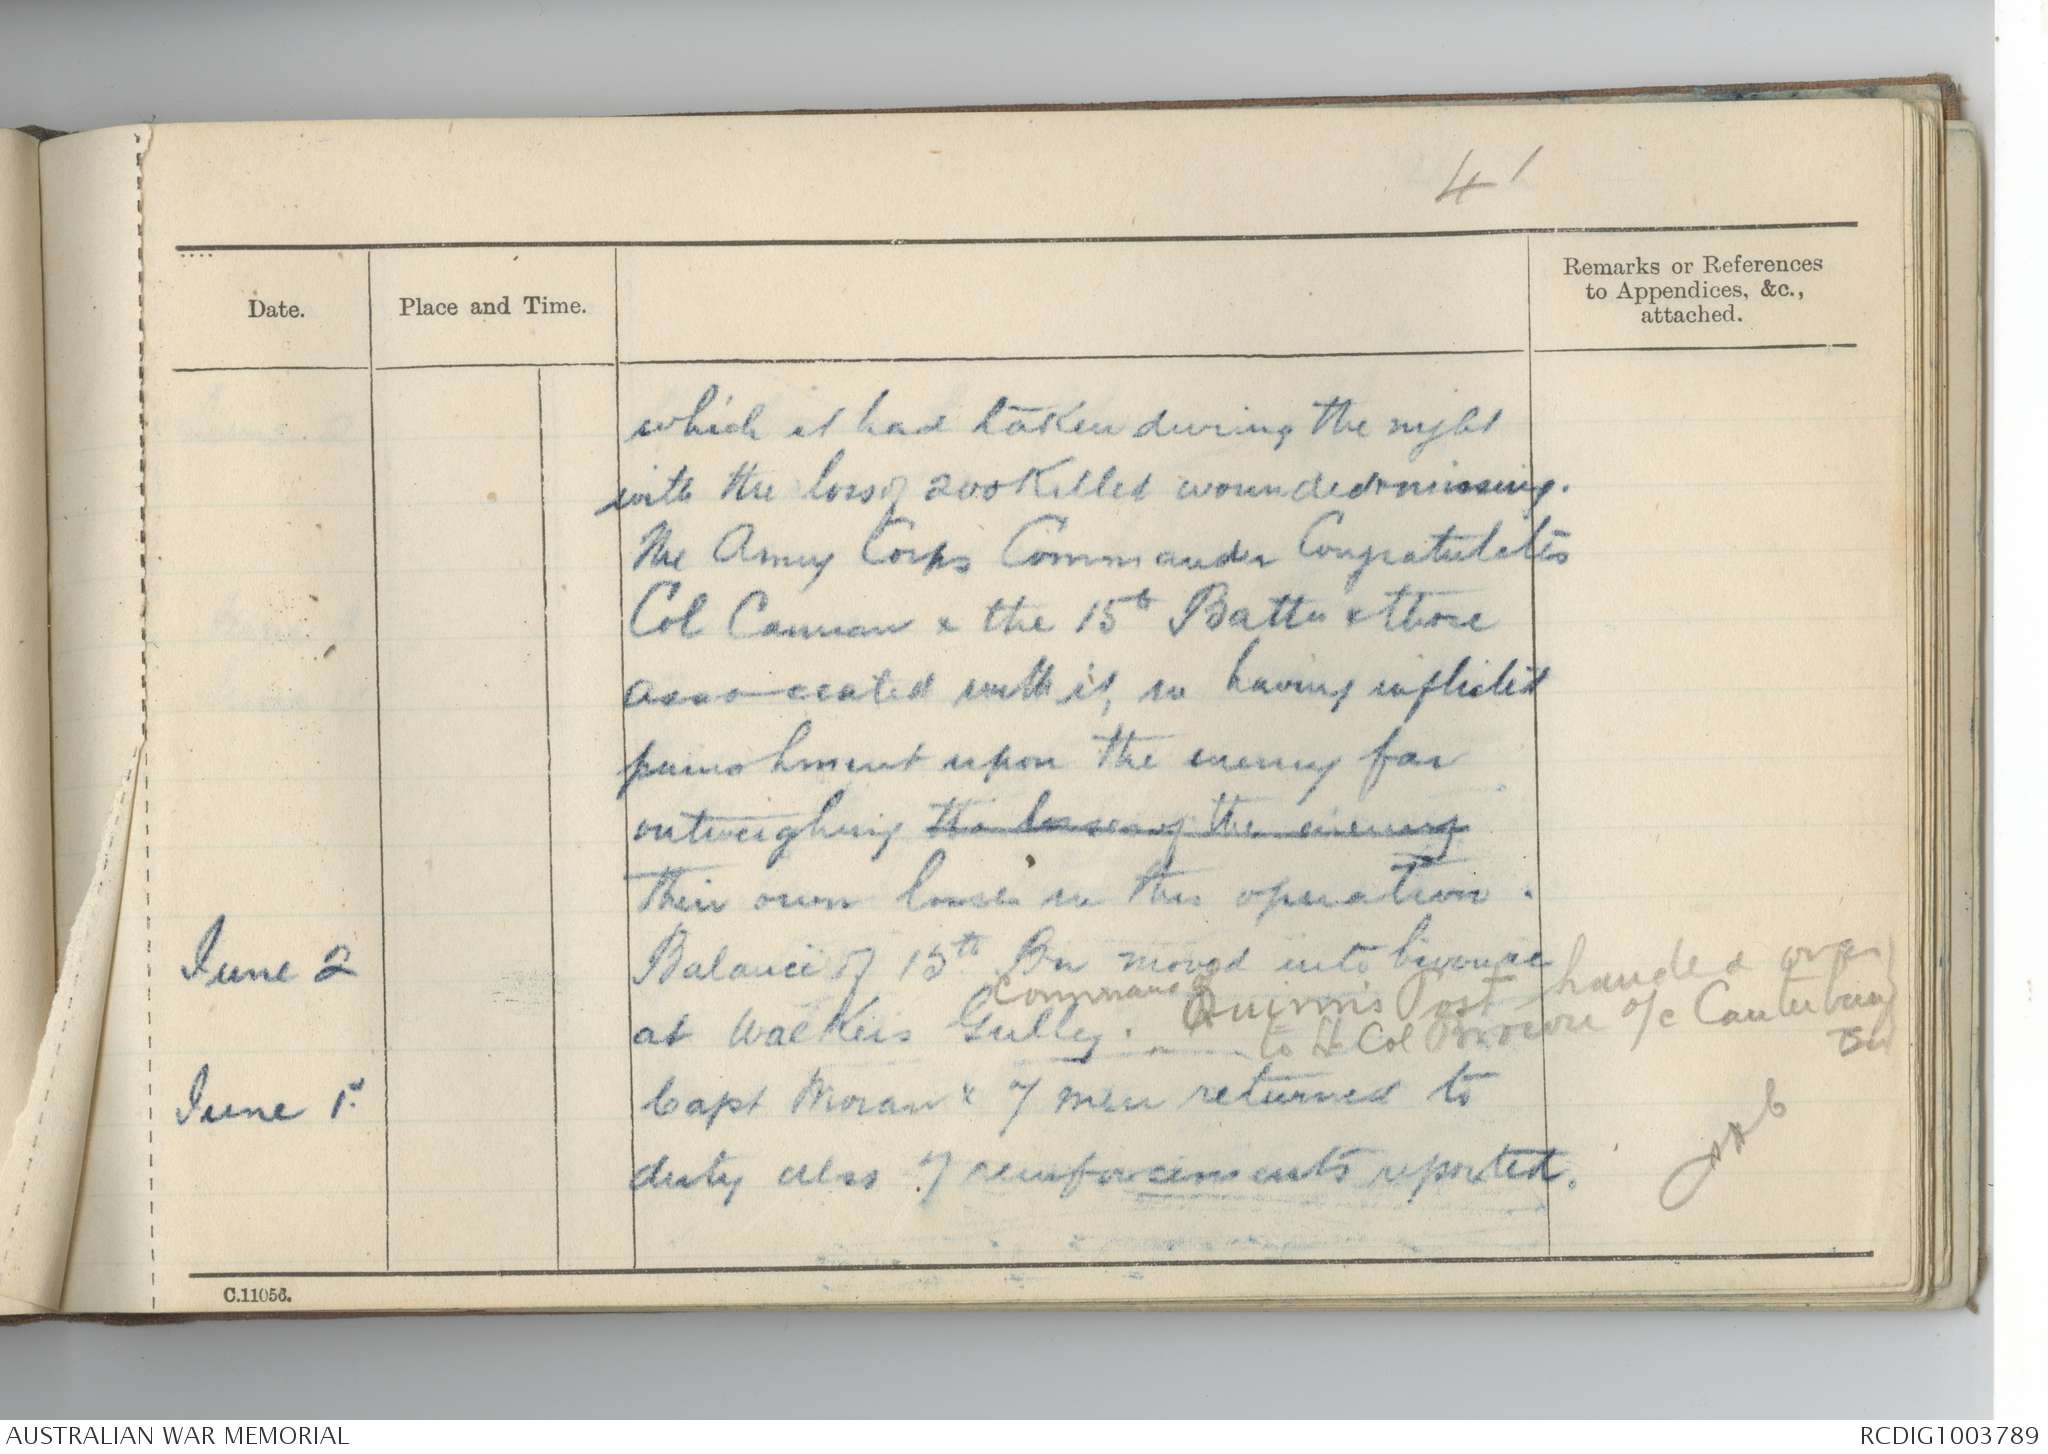 41
Date.
Place and Time.
Remarks or References
to Appendices, &c.,
attached.
which it had taken during the night
with the loss of 200 Killed wounded & missing.
The Army Corps Commander Congratulates
Col Cannan & the 15th Battn & those
associated with it, in having inflicted
punishment upon the enemy far
outweighing the losses of the enemy
their own losses in this operation.
June 2
Balance of 15th Bn moved into bivouac
at Walkers Gulley. Command Quinn's Post handed over
to Lt Col Brown o/c Canterbury
Bn
June 1st
Capt Moran & 7 men returned to
duty also 7 reinforcements reported.
C.11056.
AUSTRALIAN WAR MEMORIAL
RCDIG1003789